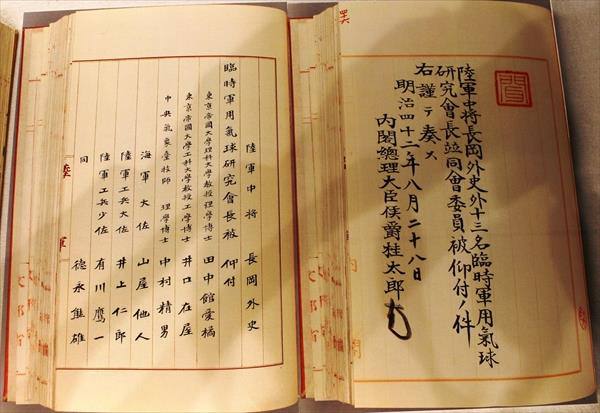 陸軍中将長岡外史外十三名臨時軍用氣球
研究會長竝同會委員被仰付ノ件
右謹テ奏ス
明治四十二年八月二十八日
内閣總理大臣侯爵桂太郎
陸軍中将 長岡外史
臨時軍用氣球研究會長被 仰付
東京帝國大學理科大學教授理學博士 田中館愛橘
東京帝國大學工科大學教授工學博士 井口在屋
中央氣象臺技師 理學博士 中村精男
海軍大佐 山屋他人
陸軍工兵大佐 井上仁郎
陸軍工兵少佐 有川鷹一
同 徳永熊雄
陸軍